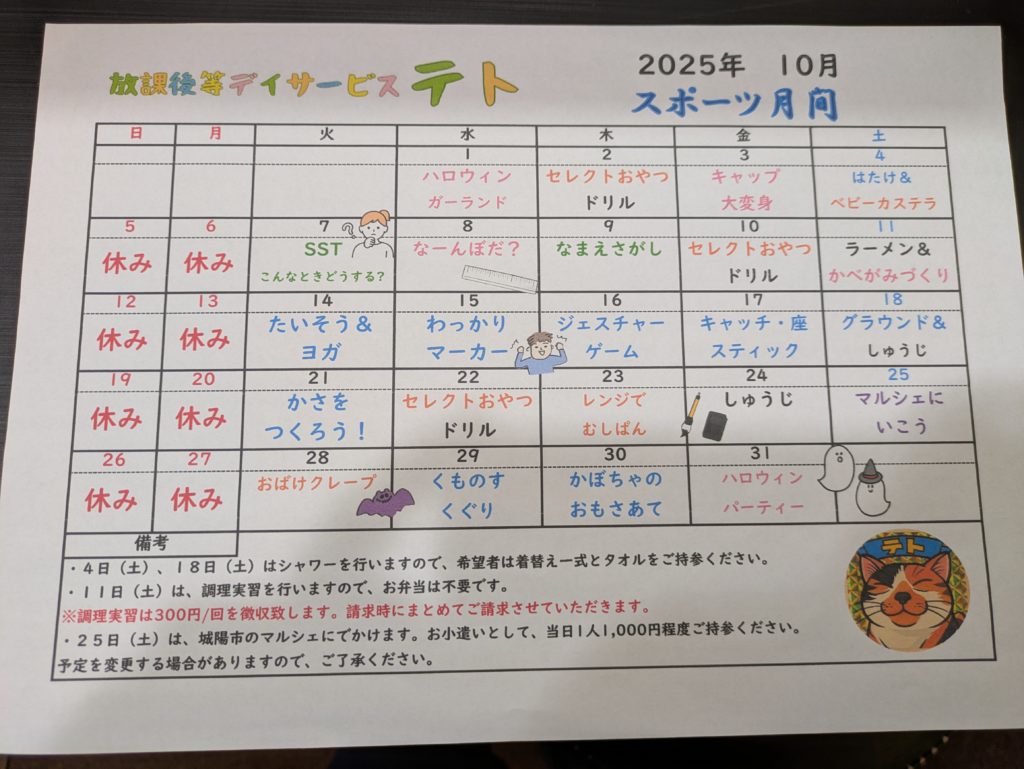 放課後等デイサービス テト
2025年 10月
スポーツ月間
日 月 火 水 木 金 土
1 2 3 4
ハロウィン セレクトおやつ キャップ はたけ&
ガーランド ドリル 大変身 ベビーカステラ
5 6 7 8 9 10 11
休み 休み SST なーんぼだ? なまえさがし セレクトおやつ ラーメン&
こんなときどうする? ドリル かべがみづくり
12 13 14 15 16 17 18
休み 休み たいそう& わっかり ジェスチャー キャッチ・座 グラウンド&
ヨガ マーカー ゲーム スティック しゅうじ
19 20 21 22 23 24 25
休み 休み かさを セレクトおやつ レンジで しゅうじ マルシェに
つくろう! ドリル むしぱん いこう
26 27 28 29 30 31
休み 休み おばけクレープ くものす かぼちゃの ハロウィン
くぐり おもさあて パーティー
備考
・4日(土)、18日(土)はシャワーを行いますので、希望者は着替え一式とタオルをご持参ください。
・11日(土)は、調理実習を行いますので、お弁当は不要です。
※調理実習は300円/回を徴収致します。請求時にまとめてご請求させていただきます。
・25日(土)は、城陽市のマルシェにでかけます。お小遣いとして、当日1人1,000円程度ご持参ください。
予定を変更する場合がありますので、ご了承ください。
テト